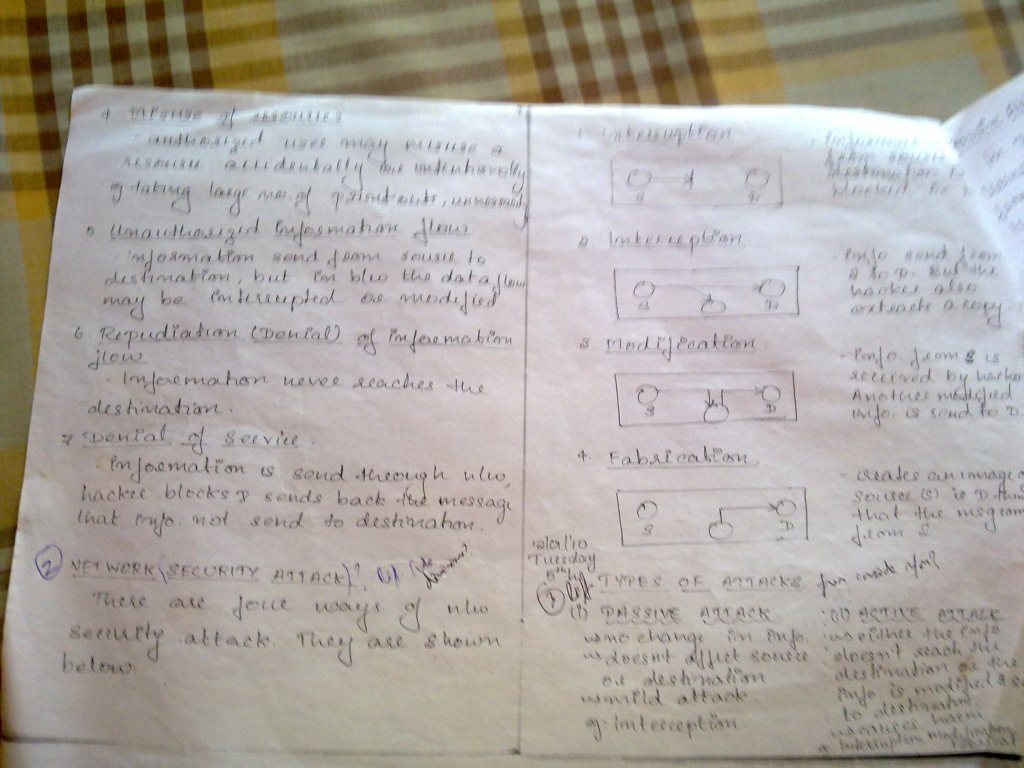 4 Misuse of resources
- authorized user may misuse a
resource accidentally or intentionally
eg: taking large no. of printouts, unwanted
5 Unauthorized Information flow
- Information send from source to
destination, but in b/w the data flow
may be interrupted or modified
6. Repudiation (Denial) of information
flow
- Information never reaches the
destination.
7 Denial of Service.
- Information is send through n/w,
hacker blocks & sends back the message
that info. not send to destination.
2 NETWORK (SECURITY ATTACK)
There are four ways of n/w
security attack. They are shown
below.
1. Interruption
S D
2. Interception
S D
info send from
S to D. But the
hacker also
extracts a copy
3 Modification.
S D
- info from S is
received by hacker
Another modified
info. is send to D.
4. Fabrication.
S D
- creates an image o
source (S) to D
that the msg from
from S
12/01/10
Tuesday
5th hr
TYPES OF ATTACKS
(i) PASSIVE ATTACK
no change in info.
doesn't affect source
or destination
mild attack
eg: interception
(ii) ACTIVE ATTACK
either the info
doesn't reach the
destination or the
info is modified & se
to destination
causes harm